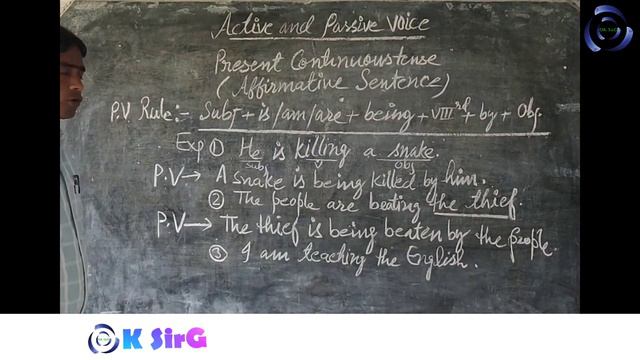 Active and Passive Voice
Present Continuoustense
(Affirmative Sentence)
P.V Rule:- Subj + is/am/are + being + VIIIrd + by + Obj.
Exp ① He is killing a snake.
Subj V Obj
P.V→ A snake is being killed by him.
② The people are beating the thief.
P.V→ The thief is being beaten by the people.
③ I am teaching the English.
K SirG